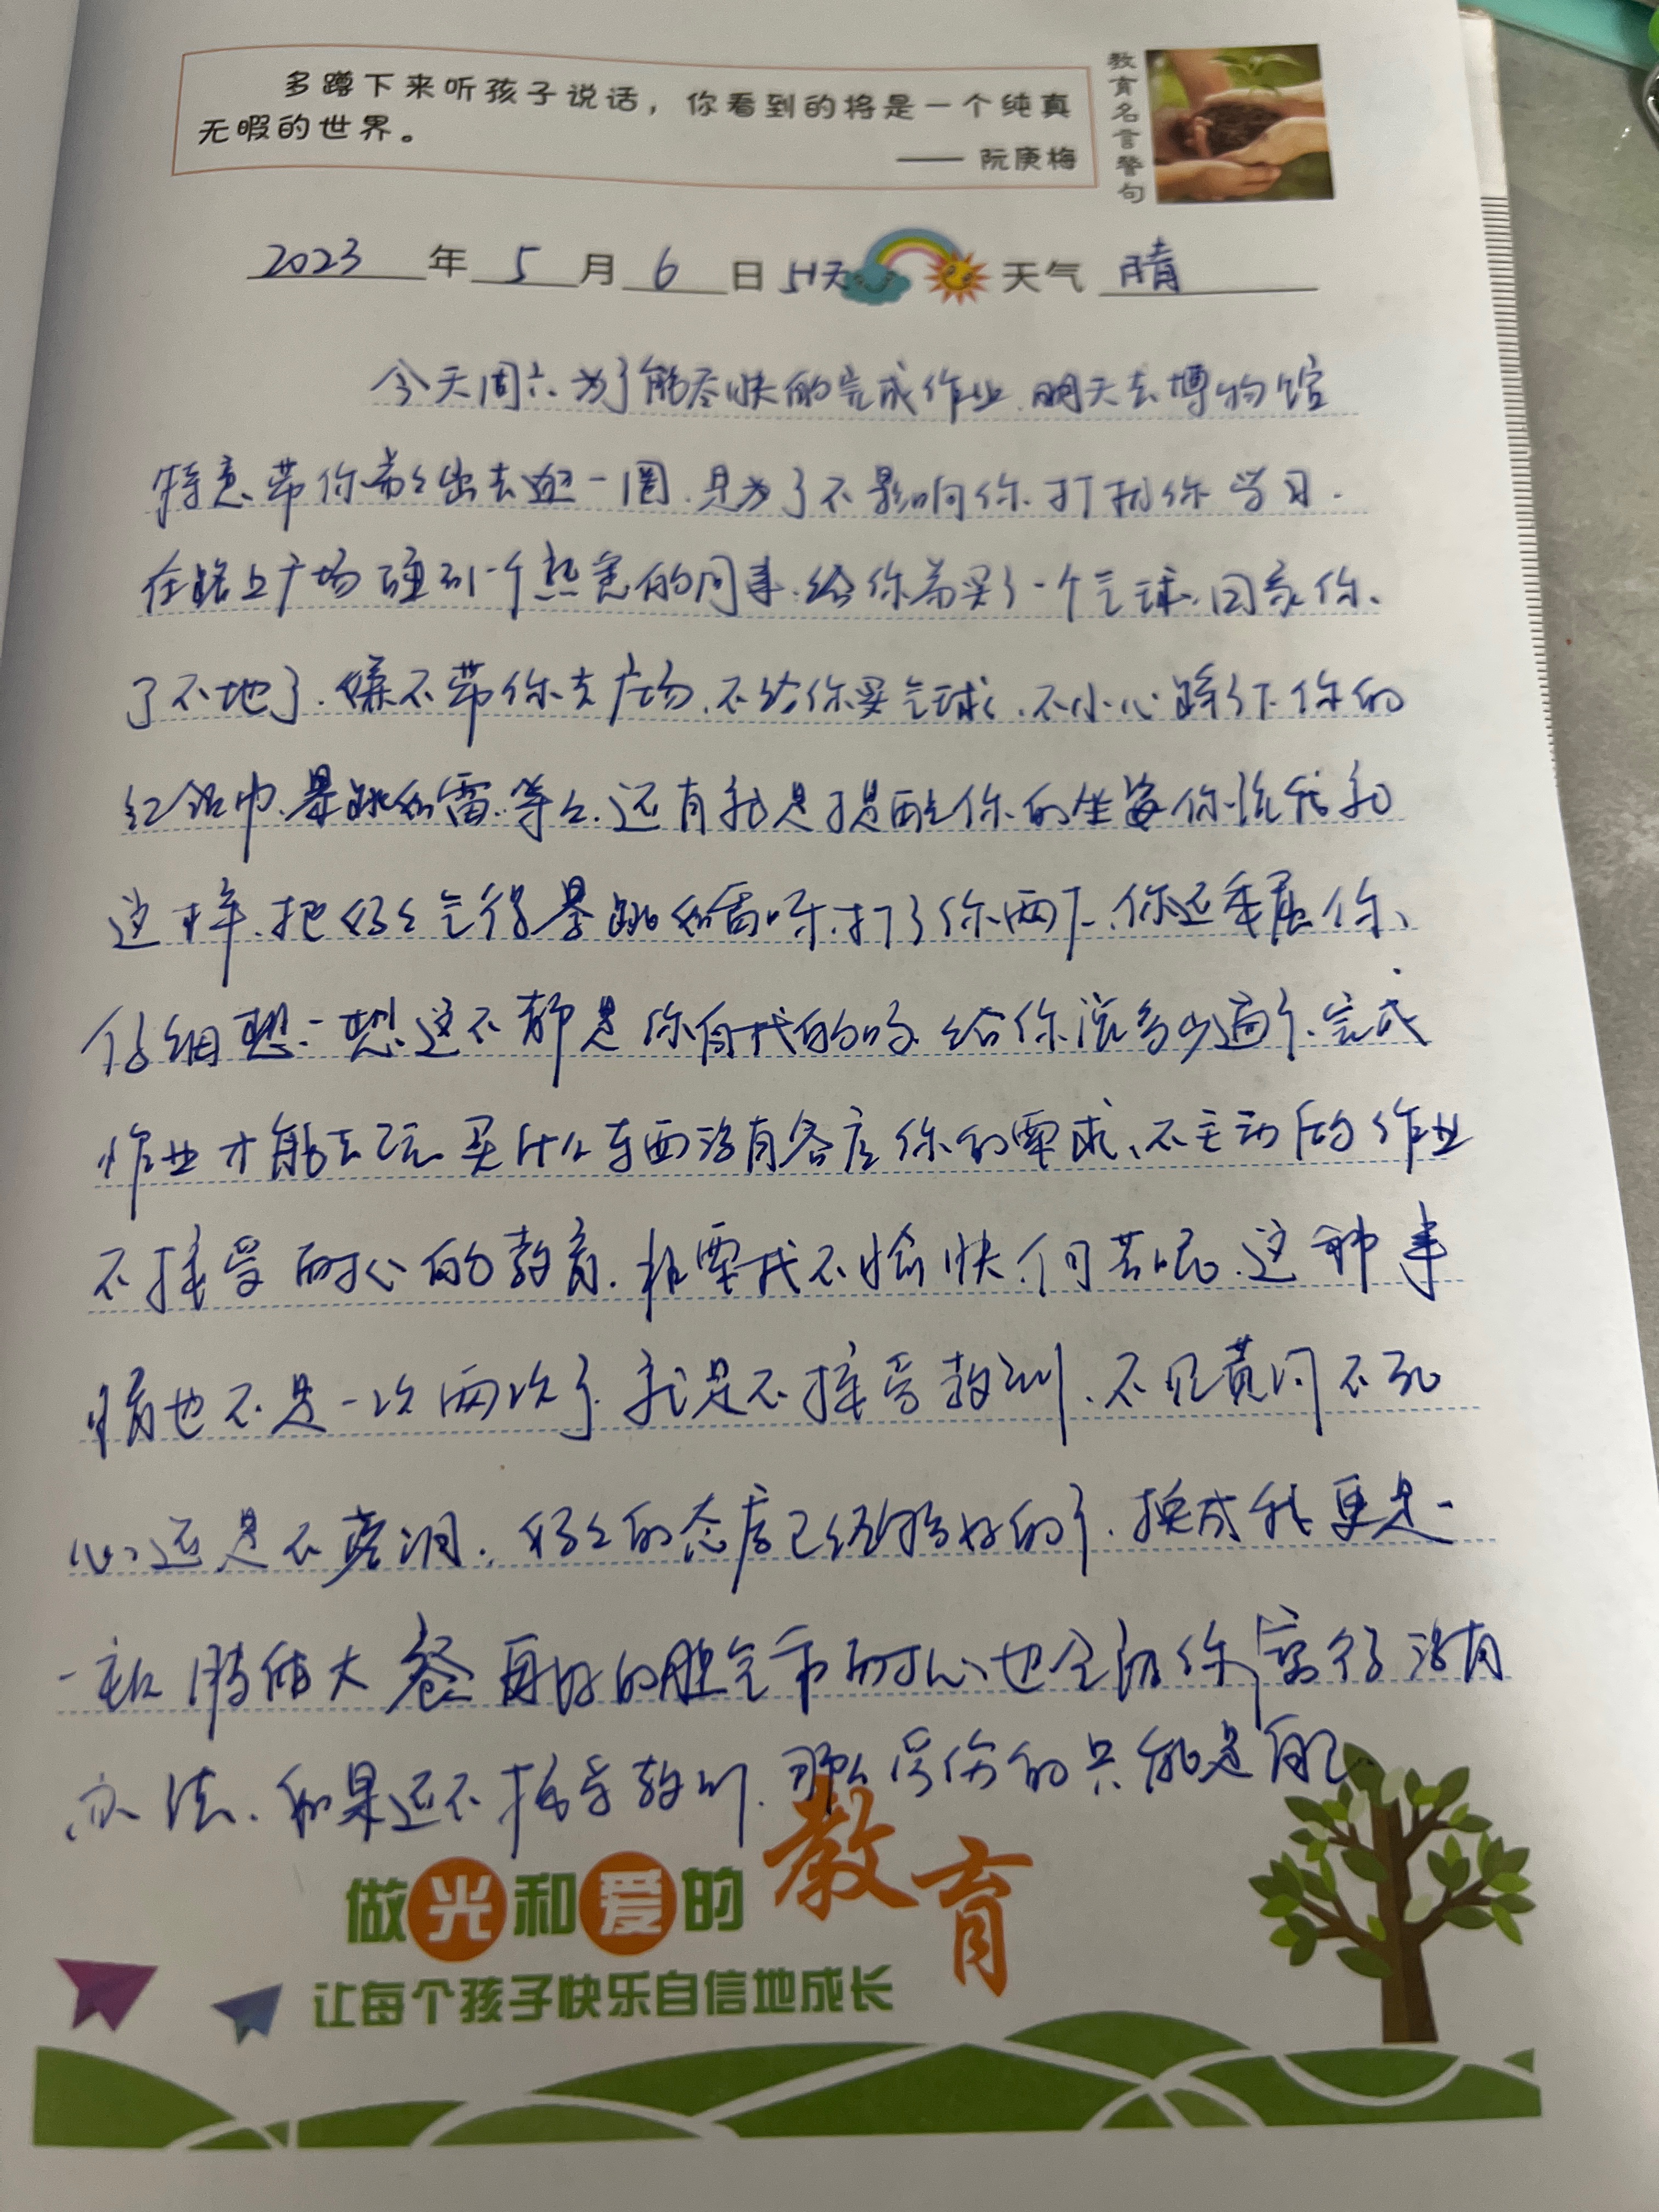 多蹲下来听孩子说话，你看到的将是一个纯真
无暇的世界。
—— 阮庚梅
教育名言警句
2023 年 5 月 6 日 51天 天气 晴
今天周六.为了能尽快的完成作业.明天去博物馆
特意带你弟弟出去逛一圈.是为了不影响你.打扰你学习.
在路上广场碰到一个热意的同事.给你弟买了一个气球.回家你、
了不地了.嫌不带你去广场.不给你买气球.不小心踩了下你的
红领巾.暴跳如雷.等等.还有就是提醒你的坐姿你说话和
这样.把妈妈气得暴跳如雷呀.打了你两下.你还委屈你、
仔细想一想.这不都是你自找的吗.给你说多少遍了.完成
作业才能去玩.买什么东西没有答应你的要求、不主动的作业
不接受耐心的教育.非要找不愉快.何苦呢.这种事
情也不是一次两次了.就是不接受教训.不见黄河不死
心.还是不落泪.妈妈的态度已经够好的了.换成我更是一
一顿胖揍大餐.再好的脾气和耐心.也全让你磨得没有
办法.如果还不接受教训.那么受伤的只能是自己.
做光和爱的教育
让每个孩子快乐自信地成长